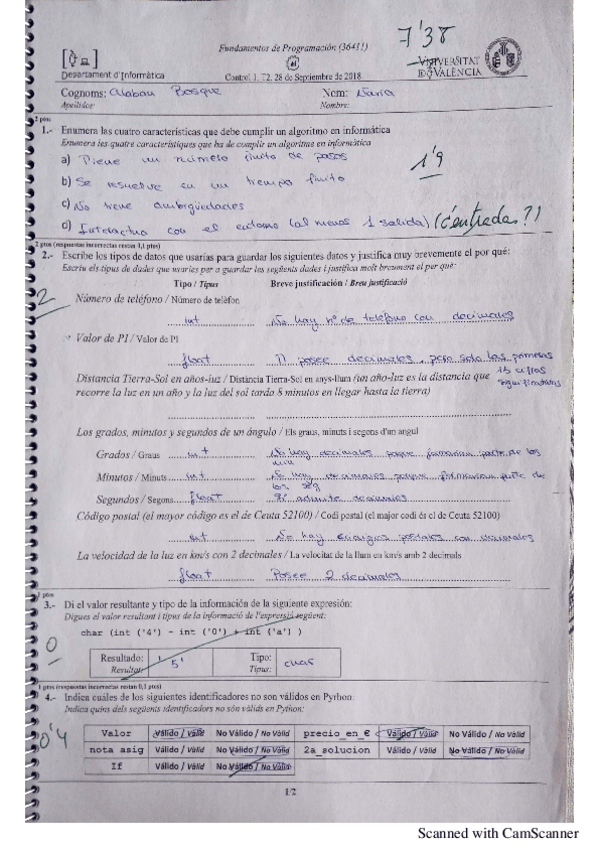 Fundamentos de Programación (36411)
7'38
Departament d'Informàtica
Control 1, T2, 28 de Septiembre de 2018
VNIVERSITAT
ID VALÈNCIA
Cognoms: Alabau Bosque Nom: Nuria
Apellidos: Nombre:
2 ptos
1.- Enumera las cuatro características que debe cumplir un algoritmo en informática
Enumera les quatre característiques que ha de cumplir un algoritme en informàtica
a) Tiene un número finito de pasos
1'9
b) Se resuelve en un tiempo finito
c) No tiene ambigüedades
d) Interactua con el entorno (al menos 1 salida) (¿entradas?)
2 ptos (respuestas incorrectas restan 0,1 ptos)
2.- Escribe los tipos de datos que usarías para guardar los siguientes datos y justifica muy brevemente el por qué:
Escriu els tipus de dades que usaries per a guardar les següents dades i justifica molt breument el per què:
2
Tipo / Tipus Breve justificación / Breu justificació
Número de teléfono / Número de telèfon
int No hay nº de teléfono con decimales
Valor de PI / Valor de PI
float Π posee decimales, pero solo las primeras
15 cifras significativas
Distancia Tierra-Sol en años-luz / Distancia Tierra-Sol en anys-llum (un año-luz es la distancia que
recorre la luz en un año y la luz del sol tarda 8 minutos en llegar hasta la tierra)
Los grados, minutos y segundos de un ángulo / Els graus, minuts i segons d'un angul
Grados / Graus int No hay decimales porque formarían parte de los
min
Minutos / Minuts int No hay decimales porque formarían parte de
los seg
Segundos / Segons float Si admite decimales
Código postal (el mayor código es el de Ceuta 52100) / Codi postal (el major codi és el de Ceuta 52100)
int No hay códigos postales con decimales
La velocidad de la luz en km/s con 2 decimales / La velocitat de la llum en km/s amb 2 decimals
float Posee 2 decimales
1 ptos
3.- Di el valor resultante y tipo de la información de la siguiente expresión:
Digues el valor resultant i tipus de la informació de l'expressió següent:
char (int ('4') - int ('0') + int ('a') )
0
Resultado: '5' Tipo: char
Resultat: Tipus:
1 ptos (respuestas incorrectas restan 0,1 ptos)
4.- Indica cuáles de los siguientes identificadores no son válidos en Python:
Indica quins dels següents identificadors no són vàlids en Python:
0'4
Valor Válido / Vàlid No Válido / No Vàlid precio_en_€ Válido / Vàlid No Válido / No Vàlid
nota asig Válido / Vàlid No Válido / No Vàlid 2a_solucion Válido / Vàlid No Válido / No Vàlid
If Válido / Vàlid No Válido / No Vàlid
1/2
Scanned with CamScanner